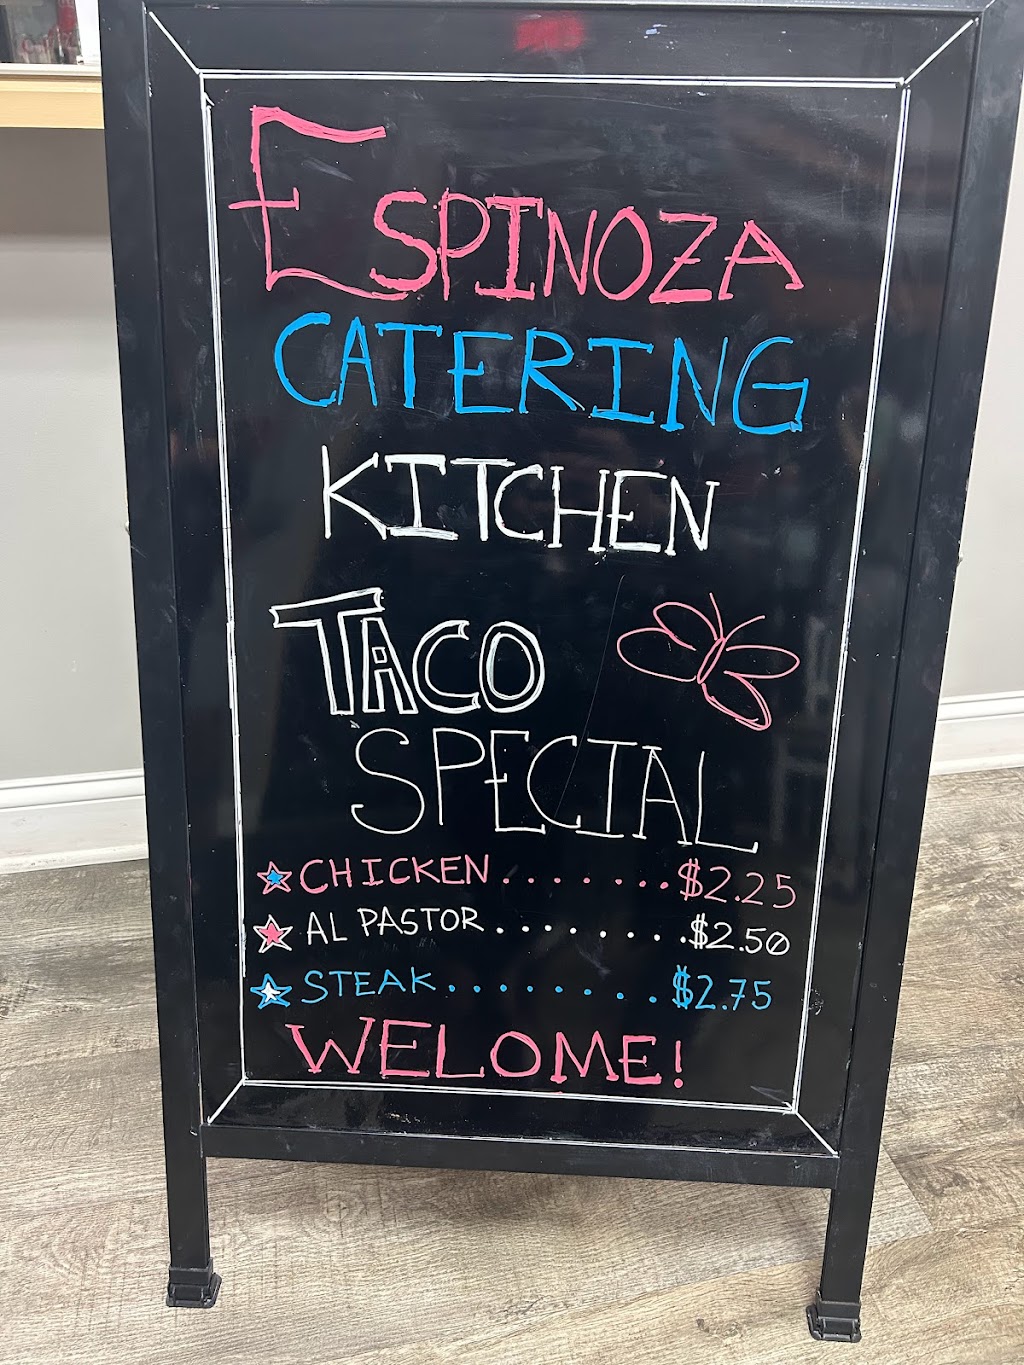 ESPINOZA
CATERING
KITCHEN
TACO
SPECIAL
CHICKEN........$2.25
AL PASTOR.........$2.50
STEAK.........$2.75
WELOME!